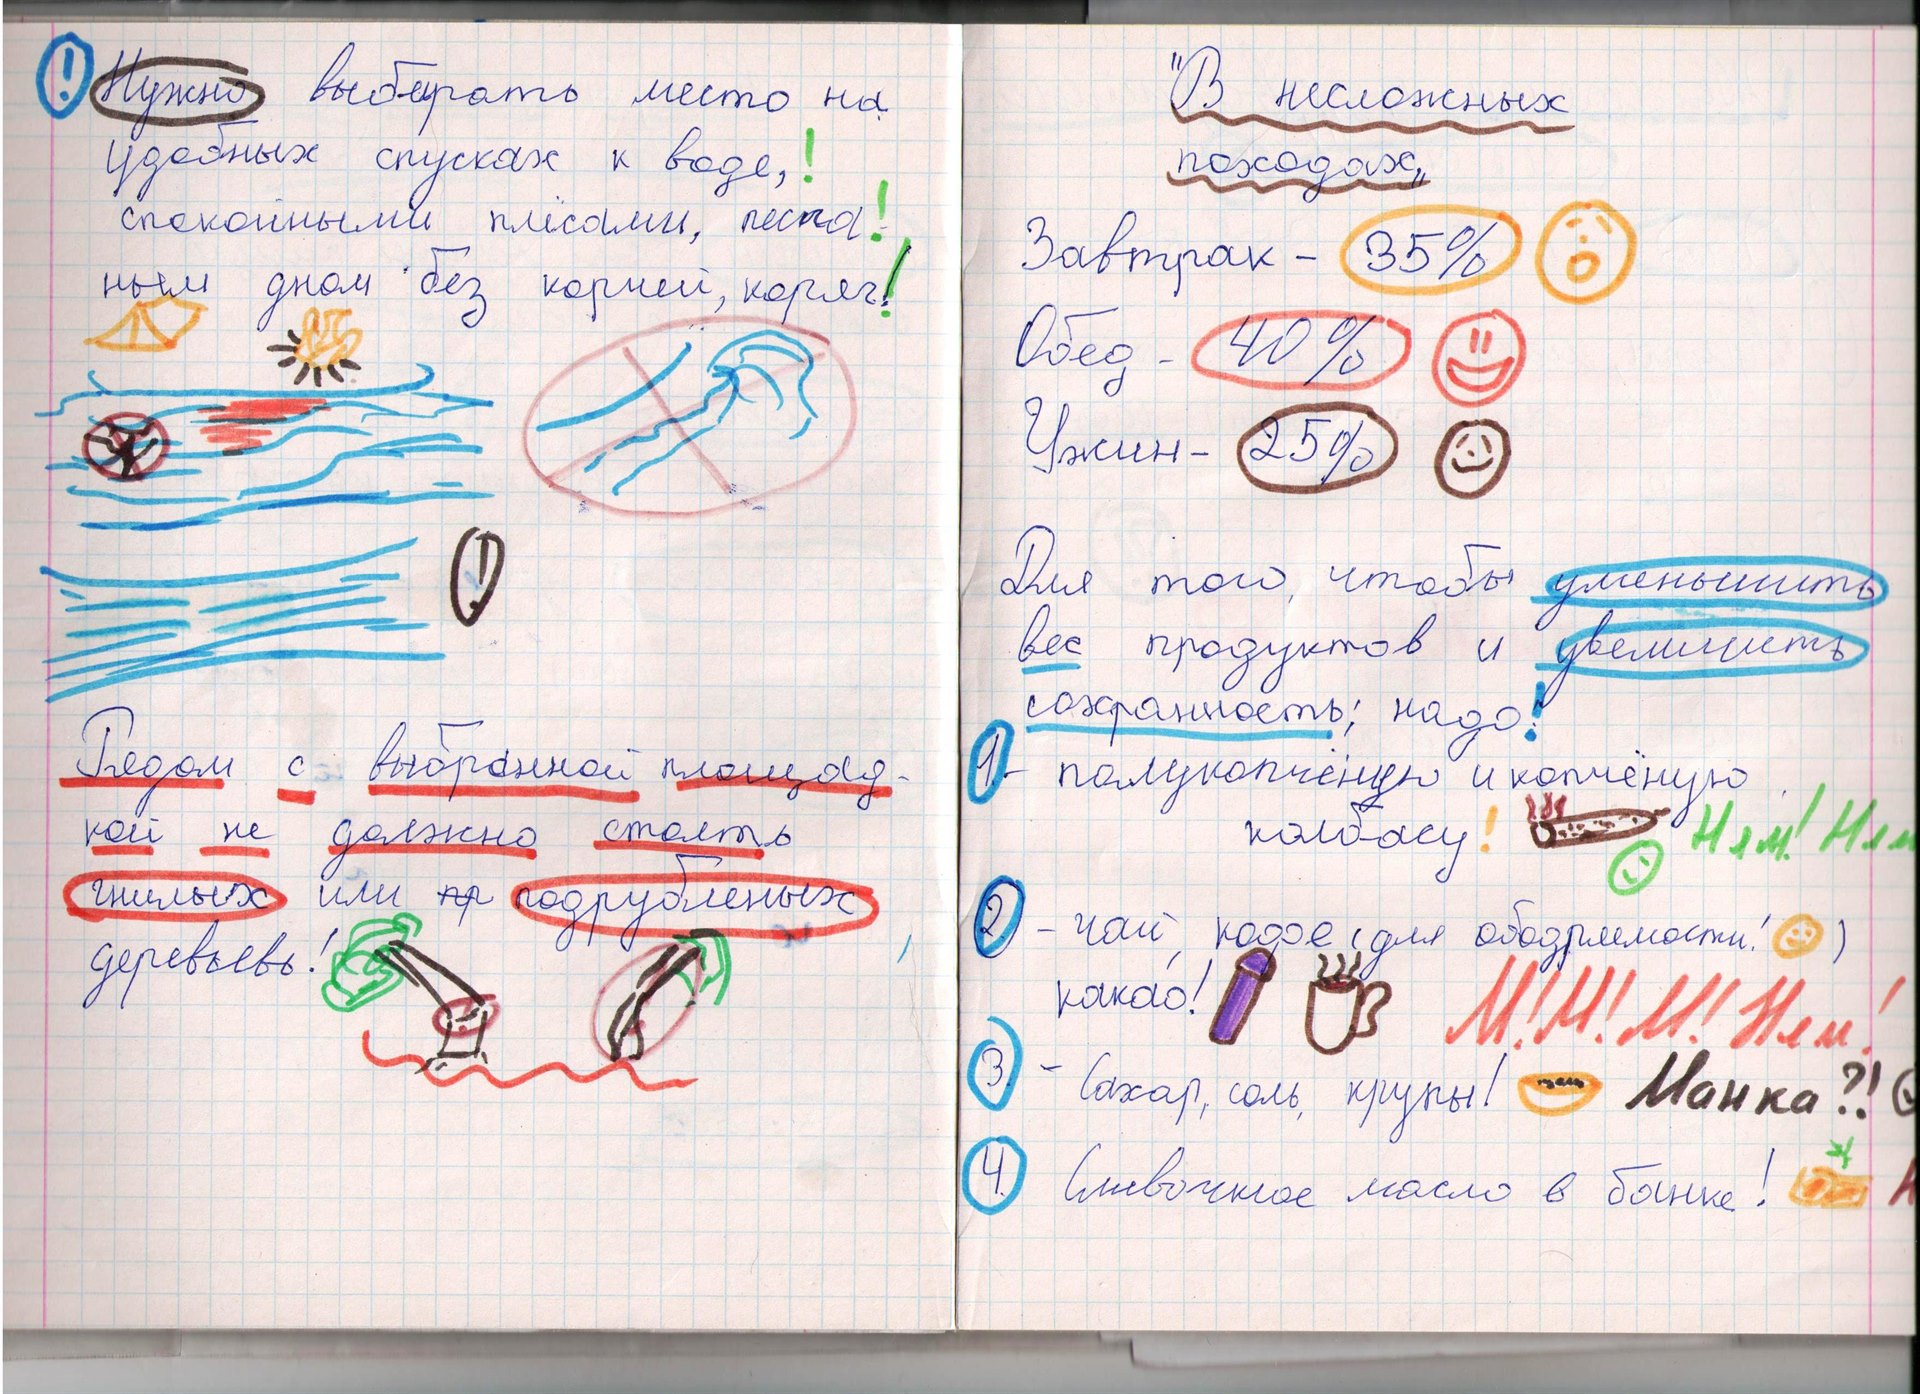 ! Нужно выбирать место на
удобных спусках к воде,!
спокойными плёсами, песча!-
ным дном без корней, коряг!
!
Рядом с выбранной площад-
кой не должно стоять
гнилых или пр подрубленых
деревьевь!
"В несложных
походах„
Завтрак - 35%
Обед - 40%
Ужин - 25%
Для того, чтобы уменьшить
вес продуктов и увеличить
сохранность; надо!
1 - полукопчёную и копчёную
колбасу! Ням! Ням
2 - чай, кофе (для ободрямости! )
какао! М! М! М! Ням!
3. - Сахар, соль, крупы! Манка?!
4. Сливочное масло в банке!